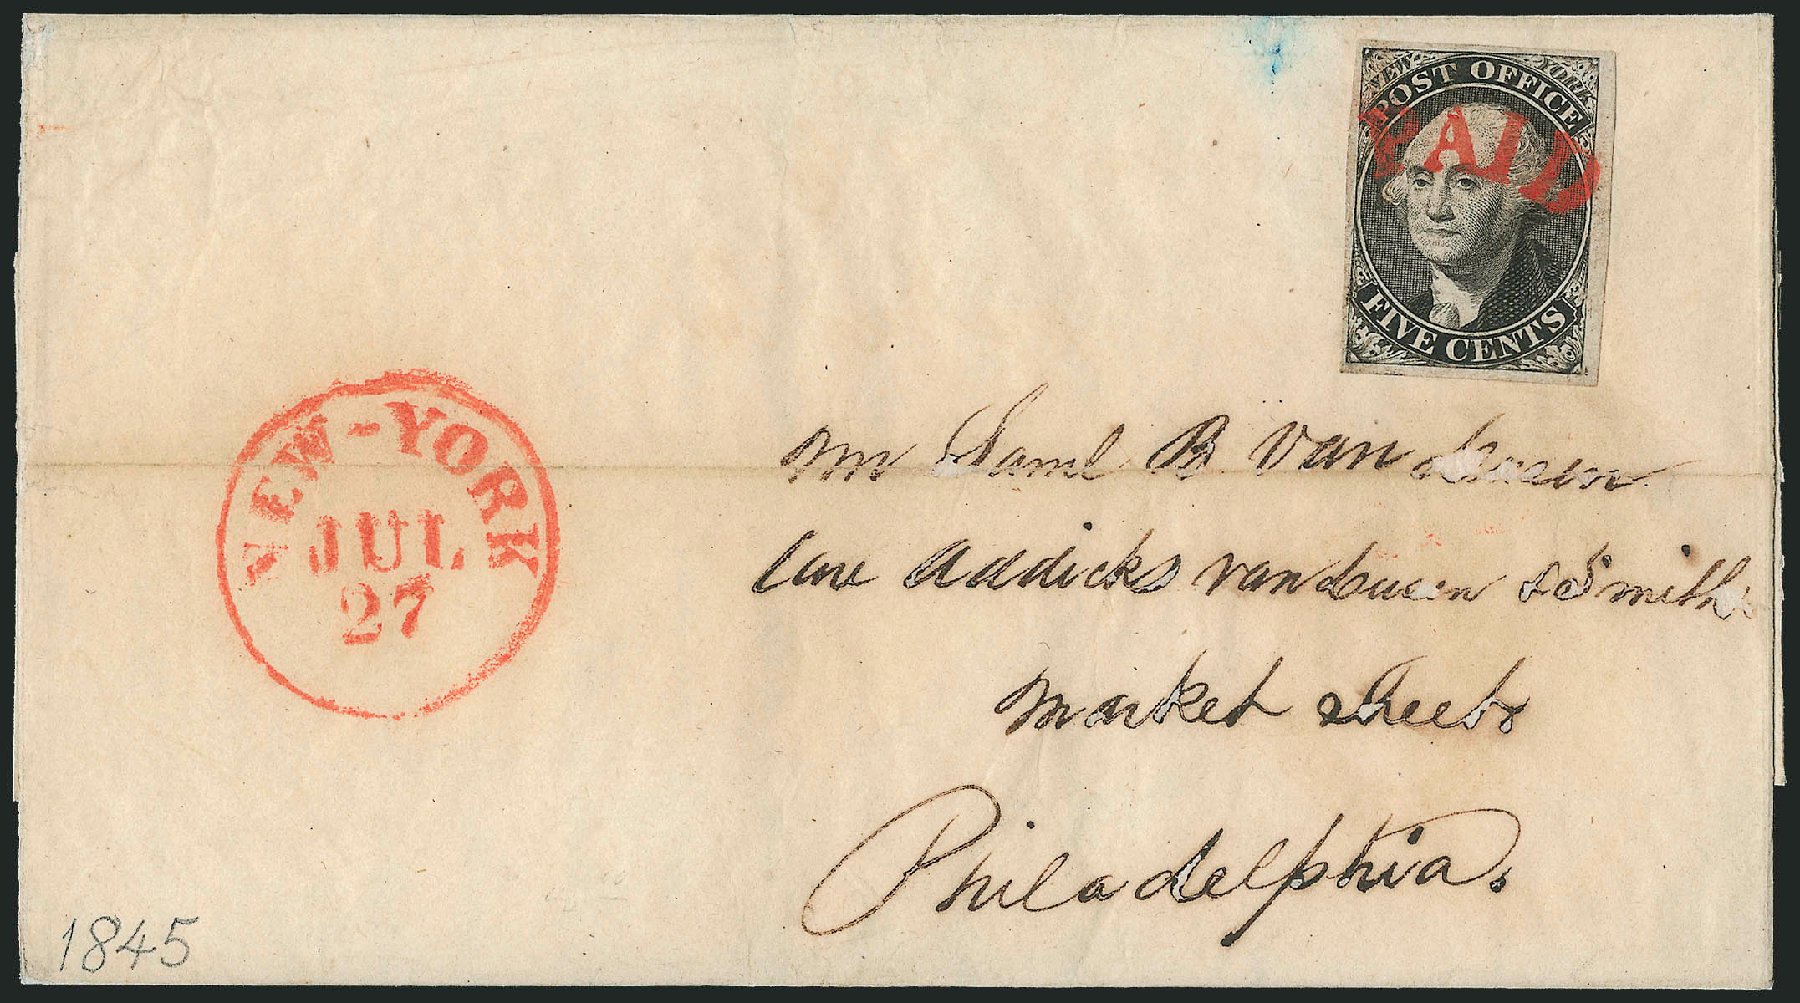 NEW YORK
POST OFFICE
PAID
FIVE CENTS
NEW-YORK
JUL
27
Mr Saml B. Van Dusen
Care Addicks Van Dusen & Smith
Market Street
Philadelphia.
1845